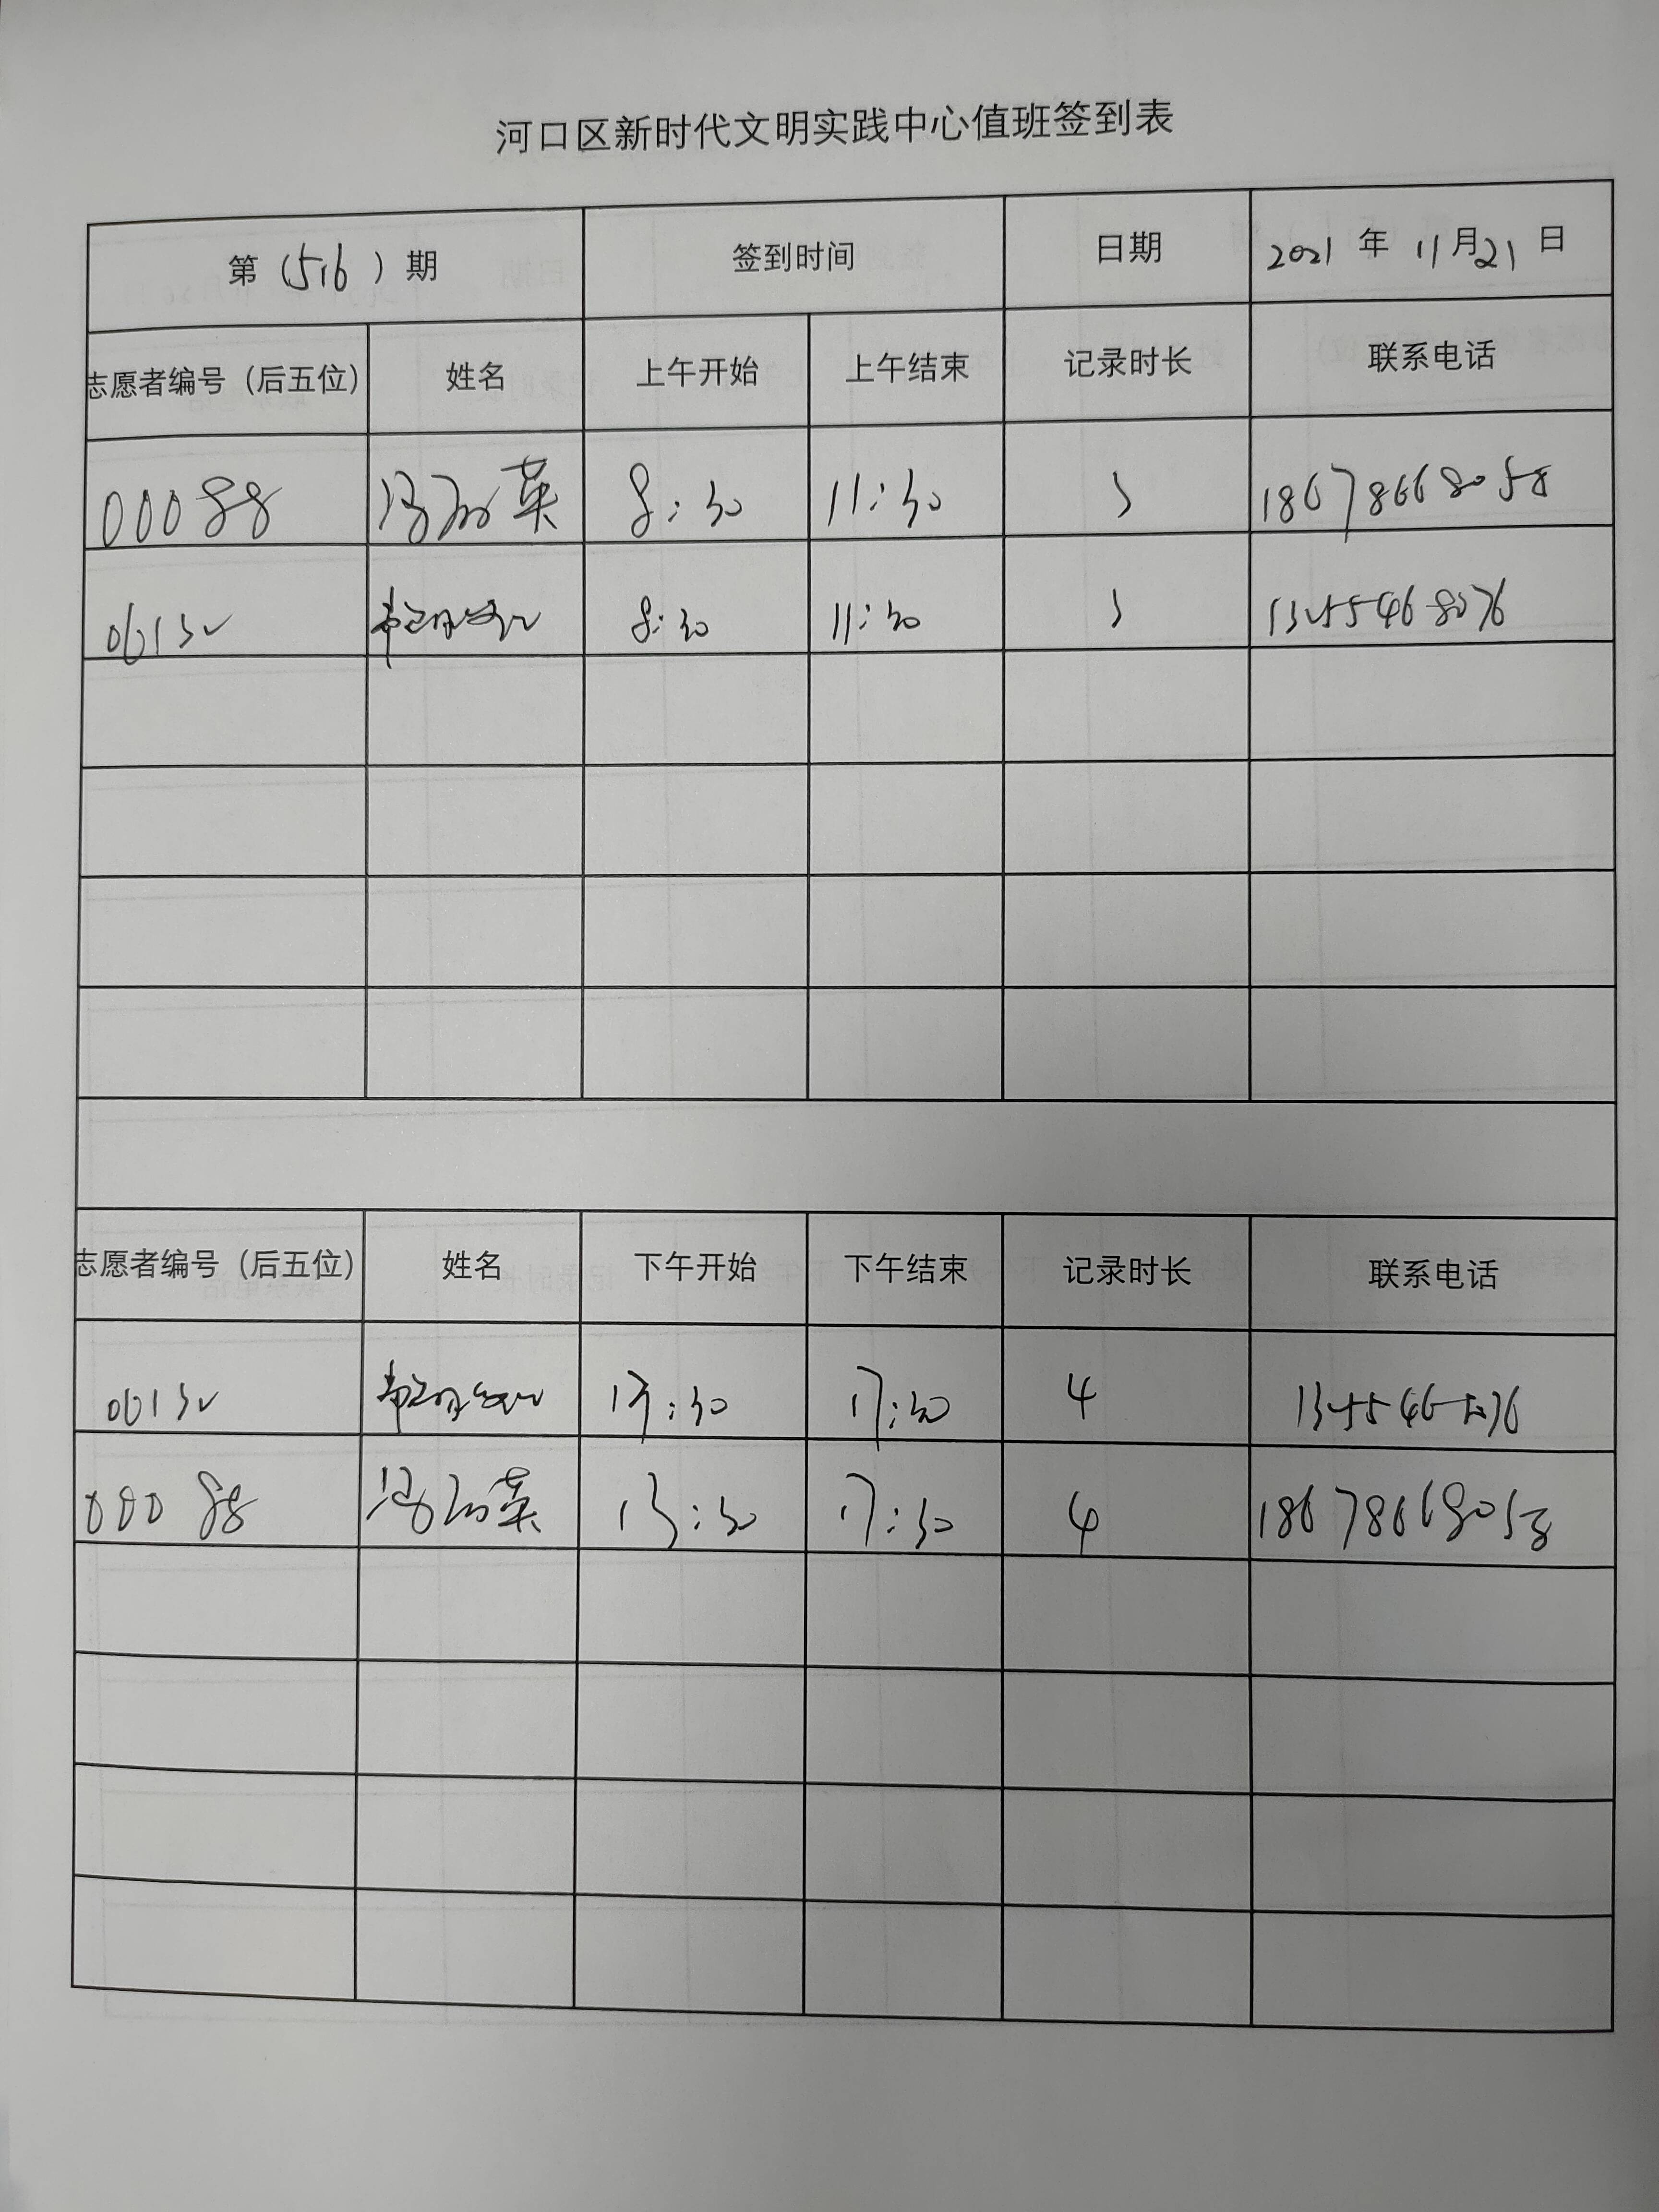 河口区新时代文明实践中心值班签到表
第（516）期 签到时间 日期 2021年11月21日
志愿者编号（后五位） 姓名 上午开始 上午结束 记录时长 联系电话
00088 英 8:30 11:30 3 18678668058
06132 8:30 11:30 3 13255468076
志愿者编号（后五位） 姓名 下午开始 下午结束 记录时长 联系电话
06132 13:30 17:30 4 13255468076
00088 英 13:30 17:30 4 18678668058